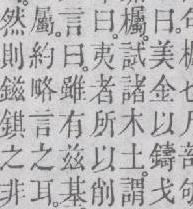 曰。美金以鑄戈
欘。試諸木土。謂
曰。夷者所以削
言曰。雖有茲基
屬。約略言之耳。
然則鎡錤之非